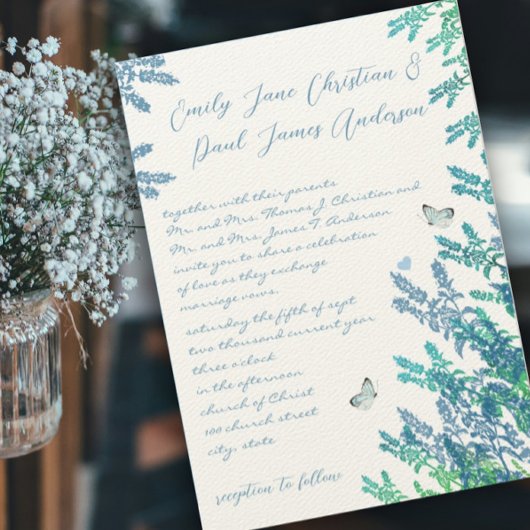 Emily Jane Christian &
Paul James Anderson
together with their parents
Mr. and Mrs. Thomas J. Christian and
Mr. and Mrs. James T. Anderson
invite you to share a celebration
of love as they exchange
marriage vows.
saturday the fifth of sept
two thousand current year
three o'clock
in the afternoon
church of Christ
100 church street
city, state
reception to follow